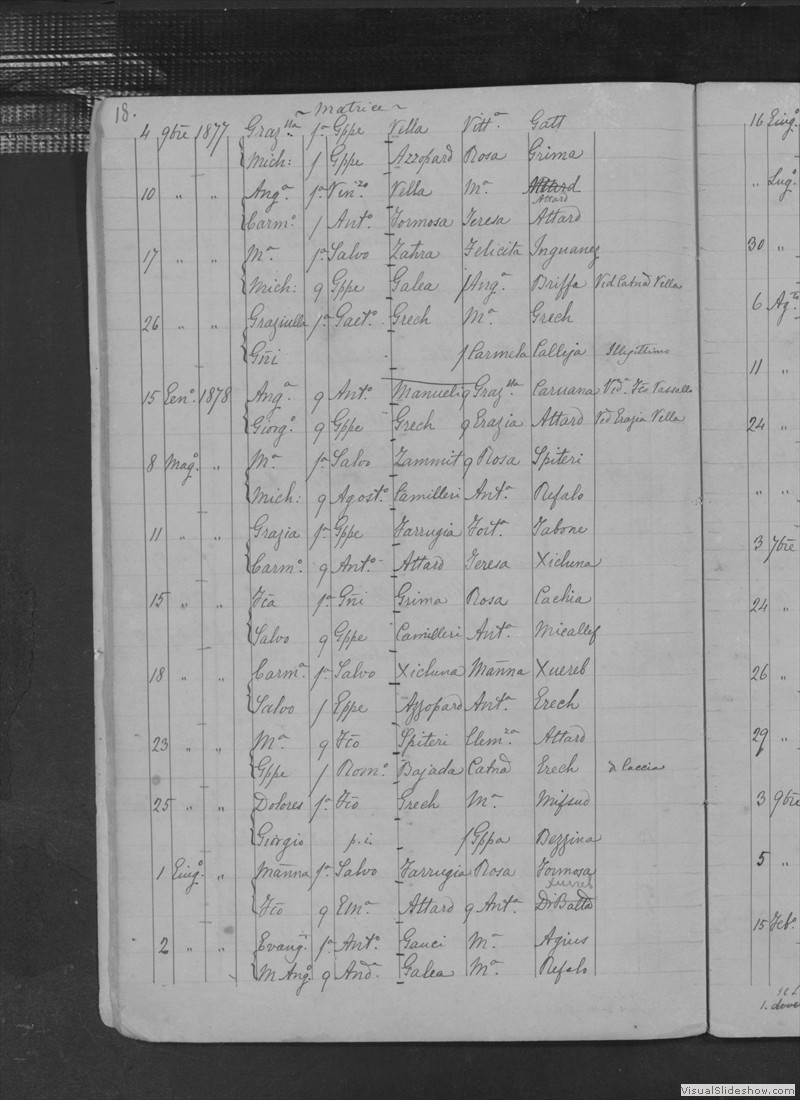 18.
~ Matrice ~
4 9bre 1877 Graz.lla fa Gppe Villa Vitt.a Gatt
Mich: f Gppe Azzopard Rosa Grima
10 " " Ang.a fa Vin.zo Villa M.a Attard
Attard
Carm.o f Ant.o Formosa Teresa Attard
17 " " M.a fa Salvo Zahra Felicita Inguanez
Mich: q Gppe Galea f Ang.a Briffa Vid Catna Villa
26 " " Graziulla fa Gaet.o Grech M.a Grech
Gñi f Carmela Calleja Illegittimo
15 Gen.o 1878 Ang.a q Ant.o Manueli q Graz.lla Caruana Ved.a Fco Vassallo
Giorg.o q Gppe Grech q Grazia Attard Ved Grazia Vella
8 Mag.o " M.a fa Salvo Zammit q Rosa Spiteri
Mich: q Agost.o Camilleri Ant.a Refalo
11 " " Grazia fa Gppe Farrugia Fort.a Tabone
Carm.o q Ant.o Attard Teresa Xicluna
15 " " Fca fa Gñi Grima Rosa Cachia
Salvo q Gppe Camilleri Ant.a Micallef
18 " " Carm.a fa Salvo Xicluna Mañna Xuereb
Salvo f Gppe Azzopard Ant.a Grech
23 " " M.a q Fco Spiteri Clem.za Attard
Gppe f Rom.o Bajada Catna Grech
25 " " Dolores fa Fco Grech M.a Mifsud
Giorgio p.i. f Gppa Bezzina
1 Giug.o " Mañna fa Salvo Farrugia Rosa Formosa
Xuereb
Fco q Em.a Attard q Ant.a DiBatta
2 " " Evang. fa Ant.o Gauci M.a Agius
M Ang.o q And.a Galea M.a Refalo
16 Giug.o
" Lug.o
30 "
6 Ag.to
11 "
24 "
" "
3 7bre
24 "
26 "
29 "
3 9bre
5 "
15 Feb.o
VisualSlideshow.com